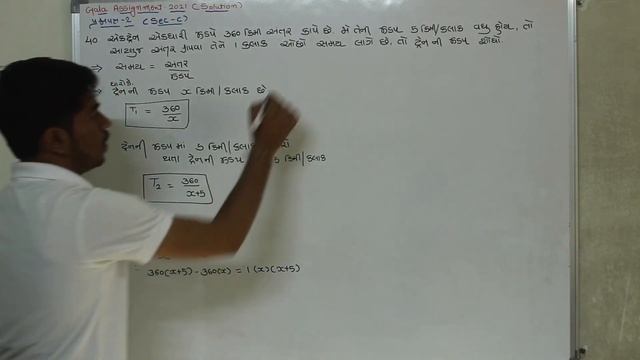 Gala Assignment 2021 (Solution)
પ્રકરણ-2 (Sec-C)
40 એક ટ્રેન એકધારી ઝડપે 360 કિમી અંતર કાપે છે. જો તેની ઝડપ 5 કિમી/કલાક વધુ હોય, તો
આટલુજ અંતર કાપવા તેને 1 કલાક ઓછો સમય લાગે છે, તો ટ્રેન ની ઝડપ શોધો.
⇒ સમય = અંતર / ઝડપ
ધારોકે
⇒ ટ્રેન ની ઝડપ x કિમી/કલાક છે
T₁ = 360/x
ટ્રેનની ઝડપમાં 5 કિમી/કલાક
થતા ટ્રેનની ઝડપ 5 કિમી/કલાક
T₂ = 360/x+5
360(x+5) - 360(x) = 1(x)(x+5)